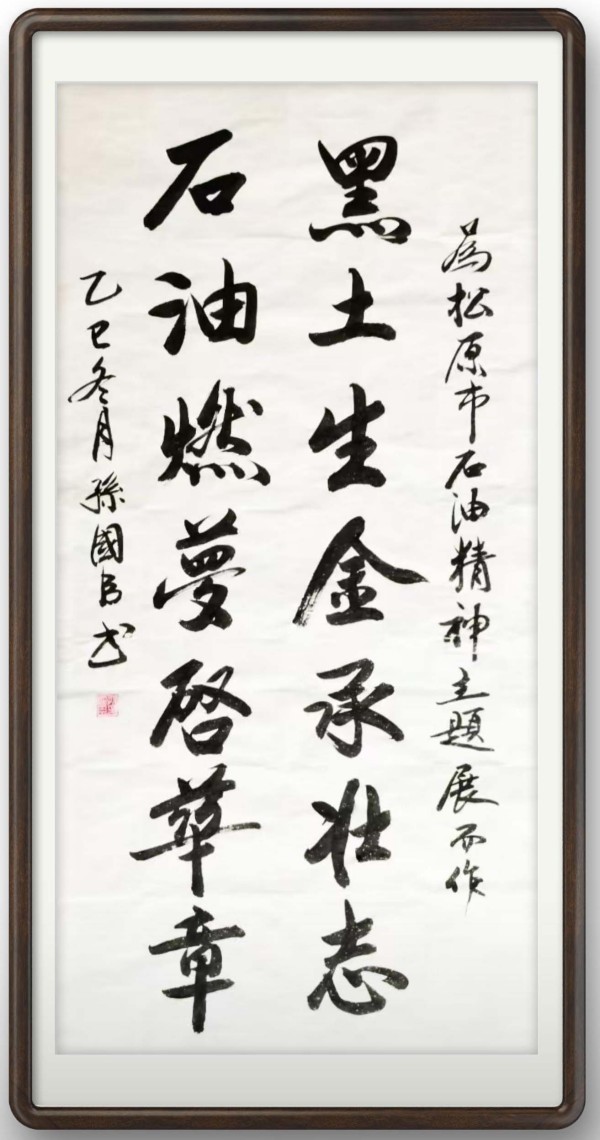 為松原市石油精神主題展而作
黑土生金承壯志
石油燃夢啓華章
乙巳冬月孫國臣書